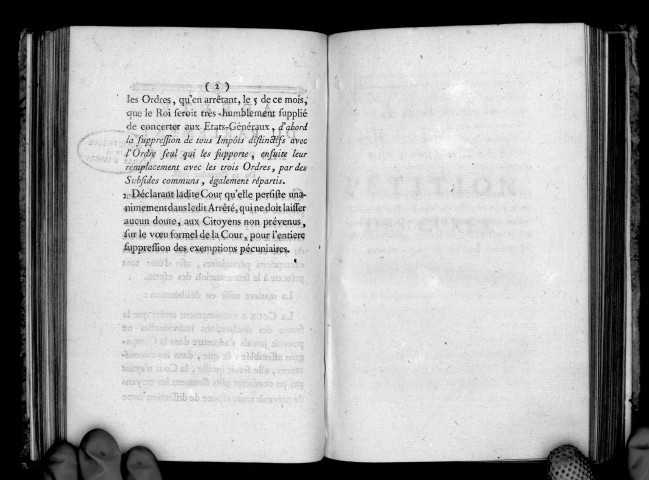 ( 2 )
les Ordres, qu'en arrêtant, le 5 de ce mois,
que le Roi seroit très-humblement supplié
de concerter aux Etats-Généraux, d'abord
la suppression de tous Impôts distinctifs avec
l'Ordre seul qui les supporte, ensuite leur
remplacement avec les trois Ordres, par des
Subsides communs, également répartis.
2. Déclarant ladite Cour qu'elle persiste una-
nimement dans ledit Arrêté, qui ne doit laisser
aucun doute, aux Citoyens non prévenus,
sur le vœu formel de la Cour, pour l'entiere
suppression des exemptions pécuniaires.